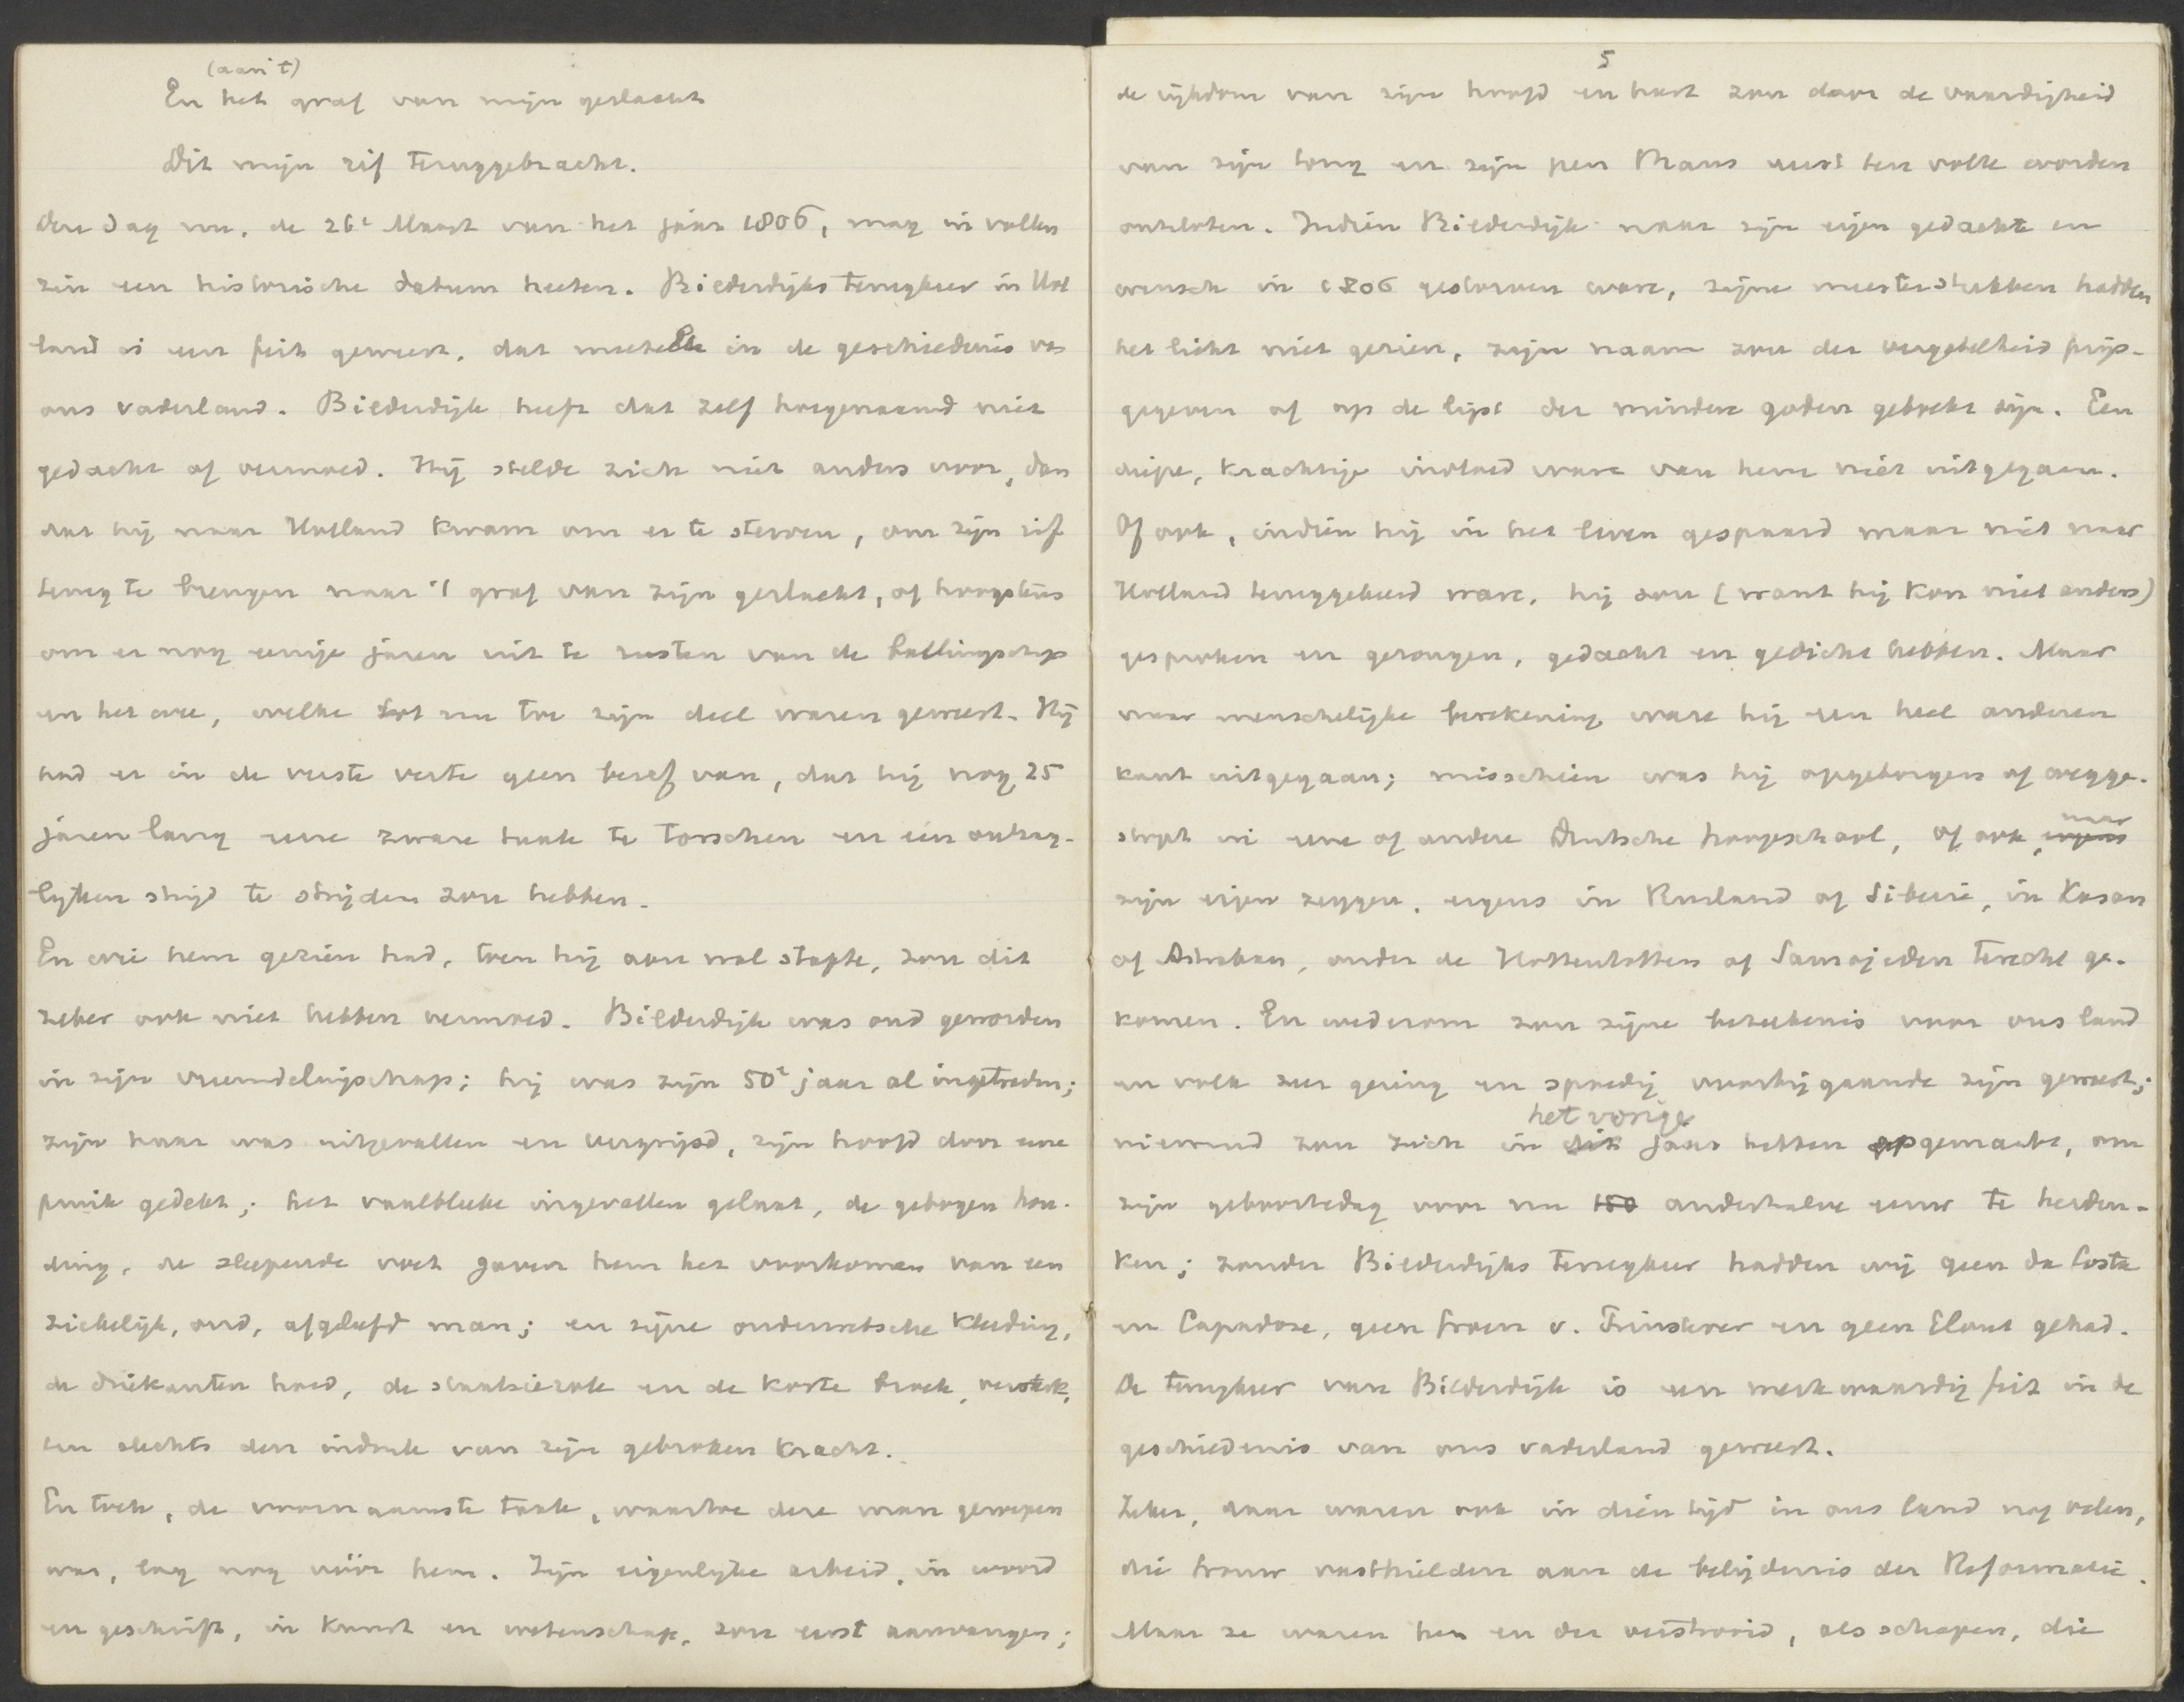 (aan 't)
En het graf van mijn geslacht
Dit mijn rif teruggebracht.
Deze dag nu, de 26e Maart van het jaar 1806, mag in vollen
zin een historische datum heeten. Bilderdijks terugkeer in Hol
land is een feit geweest, dat meetelde in de geschiedenis van
ons vaderland. Bilderdijk heeft dat zelf hoegenaamd niet
gedacht of vermoed. Hij stelde zich niet anders voor, dan
dat hij naar Holland kwam om er te sterven, om zijn rif
terug te brengen naar 't graf van zijn geslacht, of hoogstens
om er nog eenige jaren uit te rusten van de ballingschap
en het wee, welke tot nu toe zijn deel waren geweest. Hij
had er in de verste verte geen besef van, dat hij nog 25
jaren lang eene zware taak te torschen en een onhag-
lijken strijd te strijden zou hebben.
En wie hem gezien had, toen hij aan wal stapte, zou dit
zeker ook niet hebben vermoed. Bilderdijk was oud geworden
in zijn vreemdelingschap; hij was zijn 50e jaar al ingetreden;
zijn haar was uitgevallen en vergrijsd, zijn hoofd door eene
pruik gedekt; het vaalbleeke ingevallen gelaat, de gebogen hou-
ding, de sleepende voet gaven hem het voorkomen van een
ziekelijk, oud, afgeleefd man; en zijne ouderwetsche kleeding,
de driekanten hoed, de staatsierok en de korte broek, versterk-
ten slechts den indruk van zijn gebroken kracht.
En toch, de voornaamste taak, waartoe deze man geroepen
was, lag nog vóór hem. Zijn eigenlijke arbeid, in woord
en geschrift, in kunst en wetenschap, zou eerst aanvangen;
5
de rijkdom van zijn hoofd en hart zou door de vaardigheid
van zijn tong en zijn pen thans eerst ten volle worden
ontsloten. Indien Bilderdijk naar zijn eigen gedachte en
wensch in 1806 gestorven ware, zijne meesterstukken hadden
het licht niet gezien, zijn naam zou der vergetelheid prijs-
gegeven of op de lijst der mindere goden geboekt zijn. Een
diepe, krachtige invloed ware van hem niet uitgegaan.
Of ook, indien hij in het leven gespaard maar niet naar
Holland teruggekeerd ware, hij zou (want hij kon niet anders)
gesproken en gezongen, gedacht en gedicht hebben. Maar
naar menschelijke berekening ware hij een heel anderen
kant uitgegaan; misschien was hij opgeborgen of wegge-
stopt in eene of andere Duitsche hoogeschool, of ook, ergens naar
zijn eigen zeggen, ergens in Rusland of Siberië, in Kasan
of Astrakan, onder de Hottentotten of Samojeden terecht ge-
komen. En wederom zou zijne beteekenis voor ons land
en volk zeer gering en spoedig voorbijgaande zijn geweest;
het vorige
niemand zou zich in dit jaar hebben opgemaakt, om
zijn geboortedag voor nu 150 anderhalve eeuw te herden-
ken; zonder Bilderdijks terugkeer hadden wij geen da Costa
en Capadose, geen Groen v. Prinsterer en geen Elout gehad.
De terugkeer van Bilderdijk is een merkwaardig feit in de
geschiedenis van ons vaderland geweest.
Zeker, daar waren ook in dien tijd in ons land nog velen,
die trouw vasthielden aan de belijdenis der Reformatie.
Maar ze waren her en der verstrooid, als schapen, die